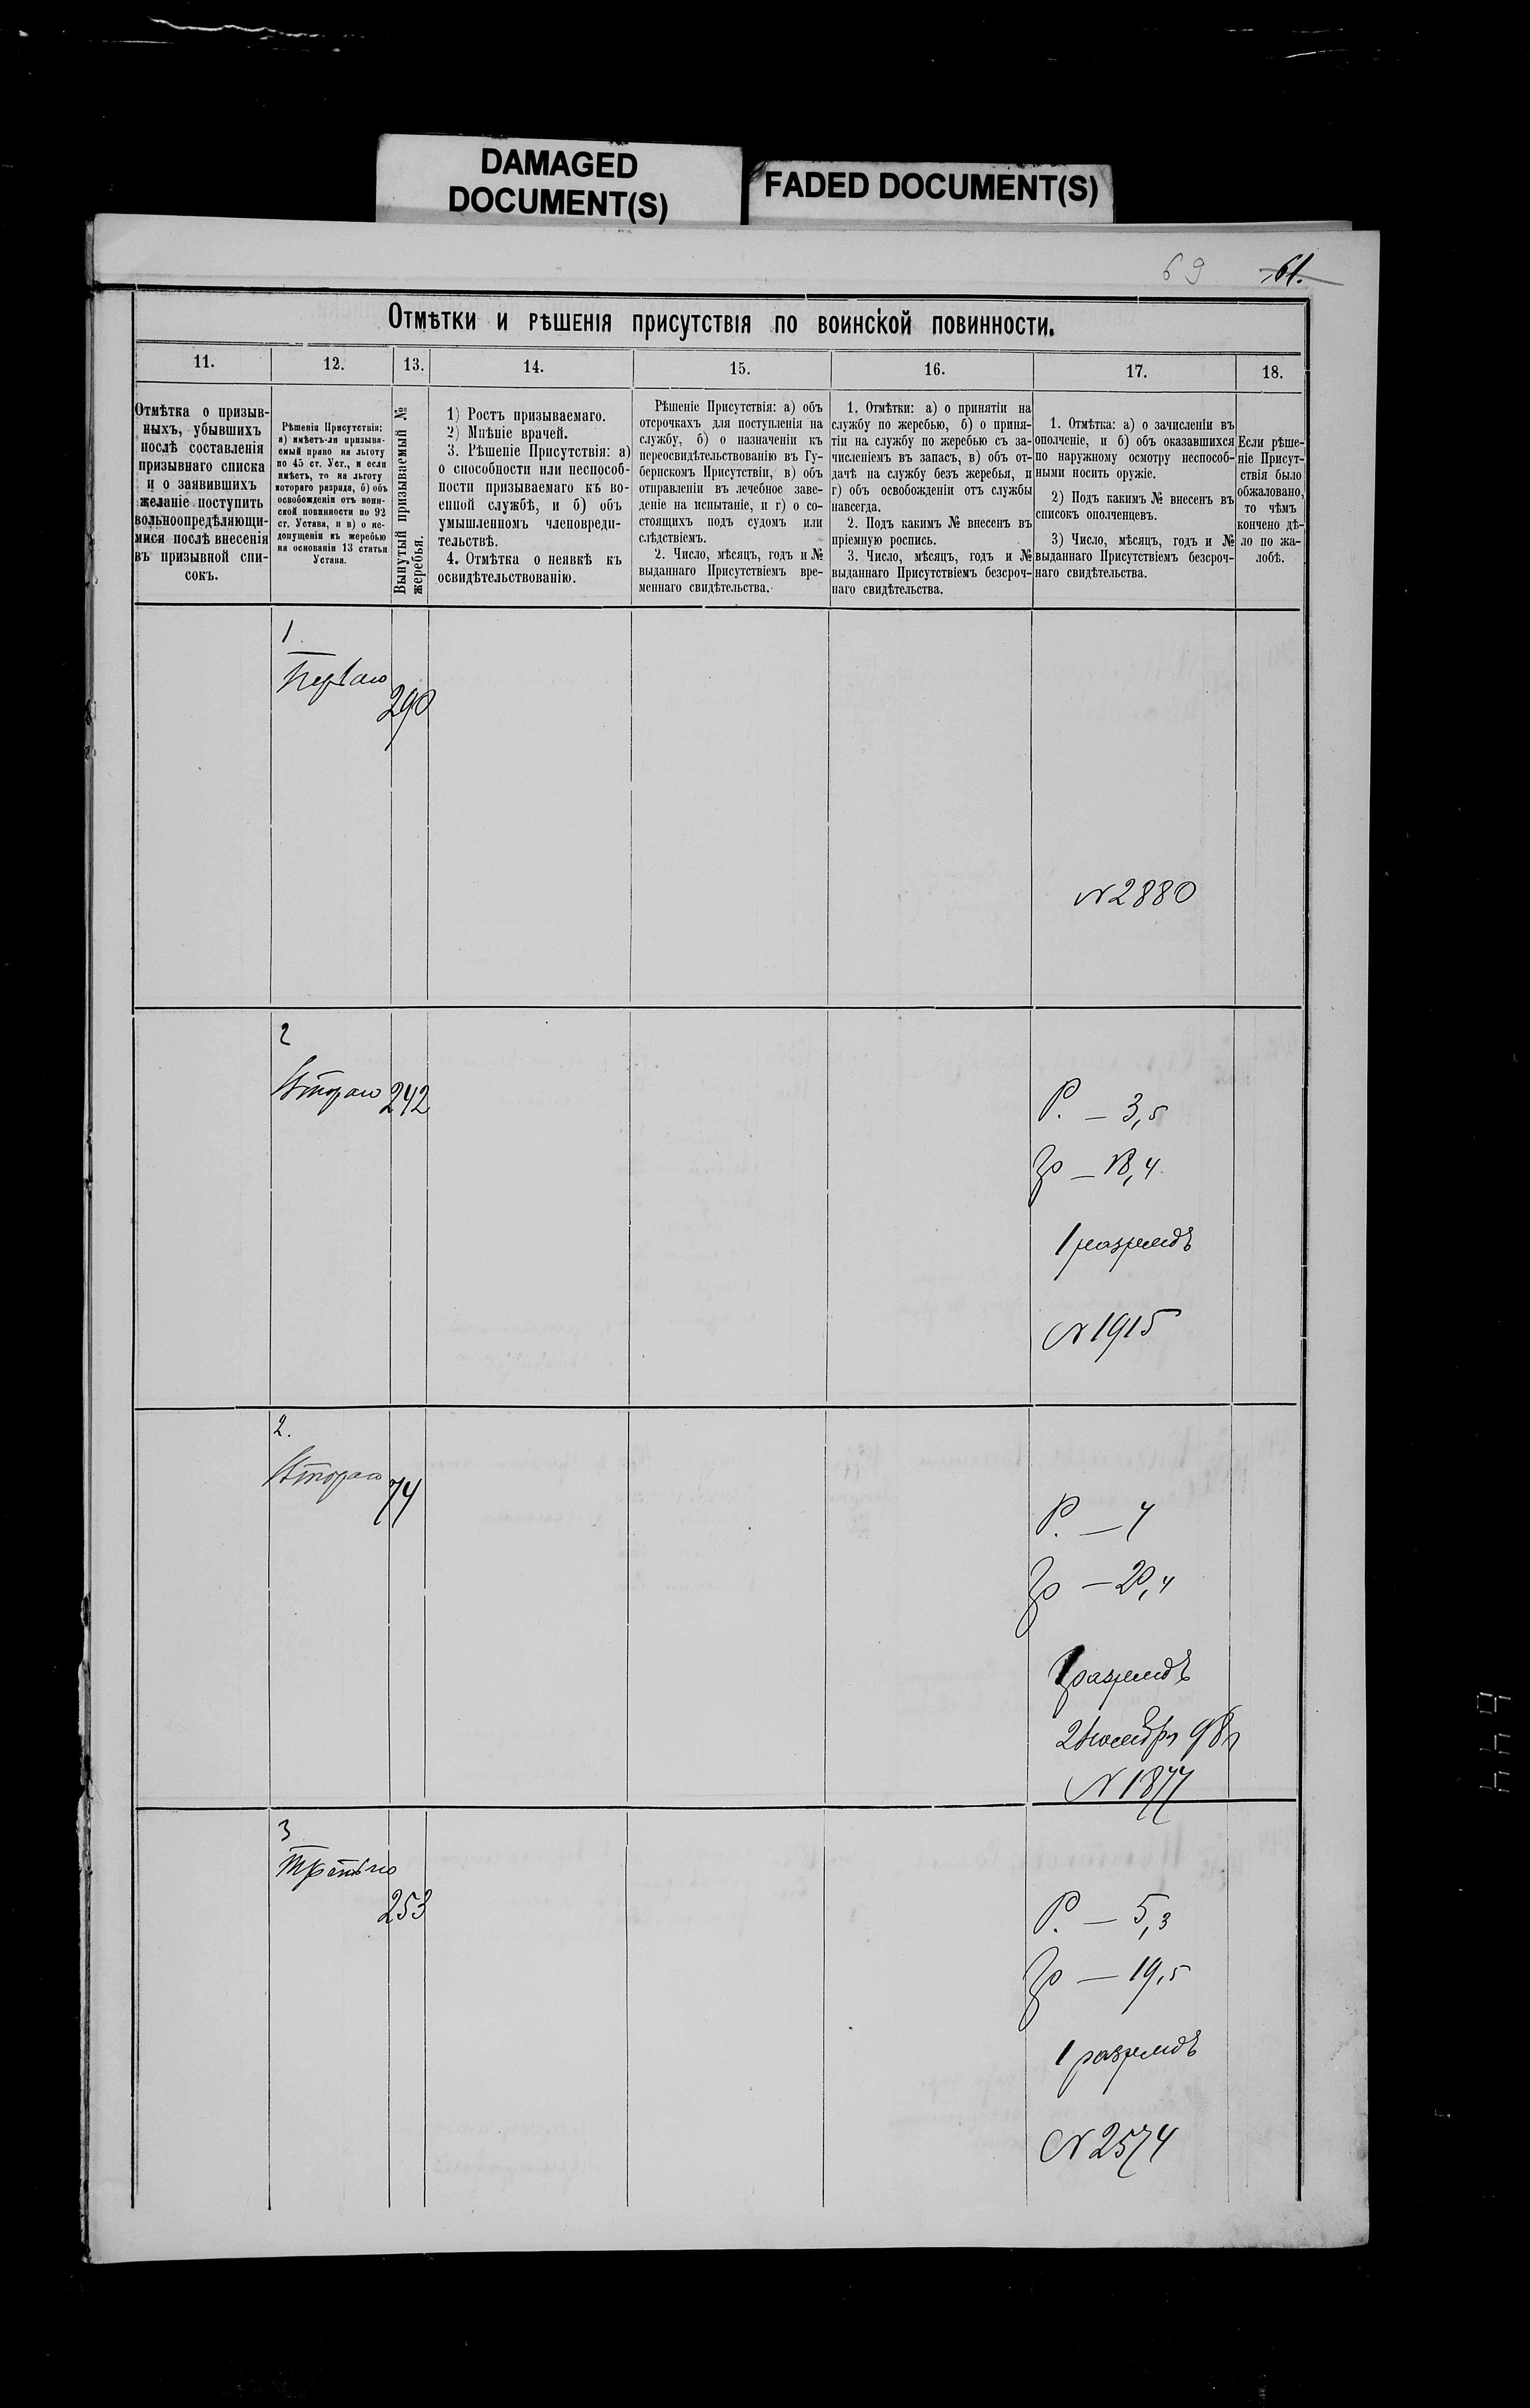 DAMAGED
DOCUMENT(S)
FADED DOCUMENT(S)
69
61.
Отмѣтки и рѣшенія присутствія по воинской повинности.
11.
12.
13.
14.
15.
16.
17.
18.
Отмѣтка о призыв-
ныхъ, убывшихъ
послѣ составленія
призывнаго списка
и о заявившихъ
желаніе поступить
вольноопредѣляющи-
мися послѣ внесенія
въ призывной спи-
сокъ.
Рѣшенія Присутствія:
а) имѣетъ-ли призыва-
емый право на льготу
по 45 ст. Уст., и если
имѣетъ, то на льготу
котораго разряда, б) объ
освобожденіи отъ воин-
ской повинности по 92
ст. Устава, и в) о не-
допущеніи къ жеребью
на основаніи 13 статьи
Устава.
Вынутый призываемый №
жеребья.
1) Ростъ призываемаго.
2) Мнѣніе врачей.
3. Рѣшеніе Присутствія: а)
о способности или неспособ-
ности призываемаго къ во-
енной службѣ, и б) объ
умышленномъ членовреди-
тельствѣ.
4. Отмѣтка о неявкѣ къ
освидѣтельствованію.
Рѣшеніе Присутствія: а) объ
отсрочкахъ для поступленія на
службу, б) о назначеніи къ
переосвидѣтельствованію въ Гу-
бернскомъ Присутствіи, в) объ
отправленіи въ лечебное заве-
деніе на испытаніе, и г) о со-
стоящихъ подъ судомъ или
слѣдствіемъ.
2. Число, мѣсяцъ, годъ и №
выданнаго Присутствіемъ вре-
меннаго свидѣтельства.
1. Отмѣтки: а) о принятіи на
службу по жеребью, б) о приня-
тіи на службу по жеребью съ за-
численіемъ въ запасъ, в) объ от-
дачѣ на службу безъ жеребья, и
г) объ освобожденіи отъ службы
навсегда.
2. Подъ какимъ № внесенъ въ
пріемную роспись.
3. Число, мѣсяцъ, годъ и №
выданнаго Присутствіемъ безсроч-
наго свидѣтельства.
1. Отмѣтка: а) о зачисленіи въ
ополченіе, и б) объ оказавшихся
по наружному осмотру неспособ-
ными носить оружіе.
2) Подъ какимъ № внесенъ въ
списокъ ополченцевъ.
3) Число, мѣсяцъ, годъ и №
выданнаго Присутствіемъ безсроч-
наго свидѣтельства.
Если рѣше-
ніе Присут-
ствія было
обжаловано,
то чѣмъ
кончено дѣ-
ло по жа-
лобѣ.
1
Перваго
290
N 2880
2
Втораго
242
Р. — 3,5
Гр — 18,4
1 разрядъ
N 1915
2.
Втораго
74
Р. — 4
Гр — 20,4
1 разрядъ
2 Ноября 98 г
N 1877
3
Третьяго
253
Р. — 5,3
Гр — 19,5
1 разрядъ
N 2574